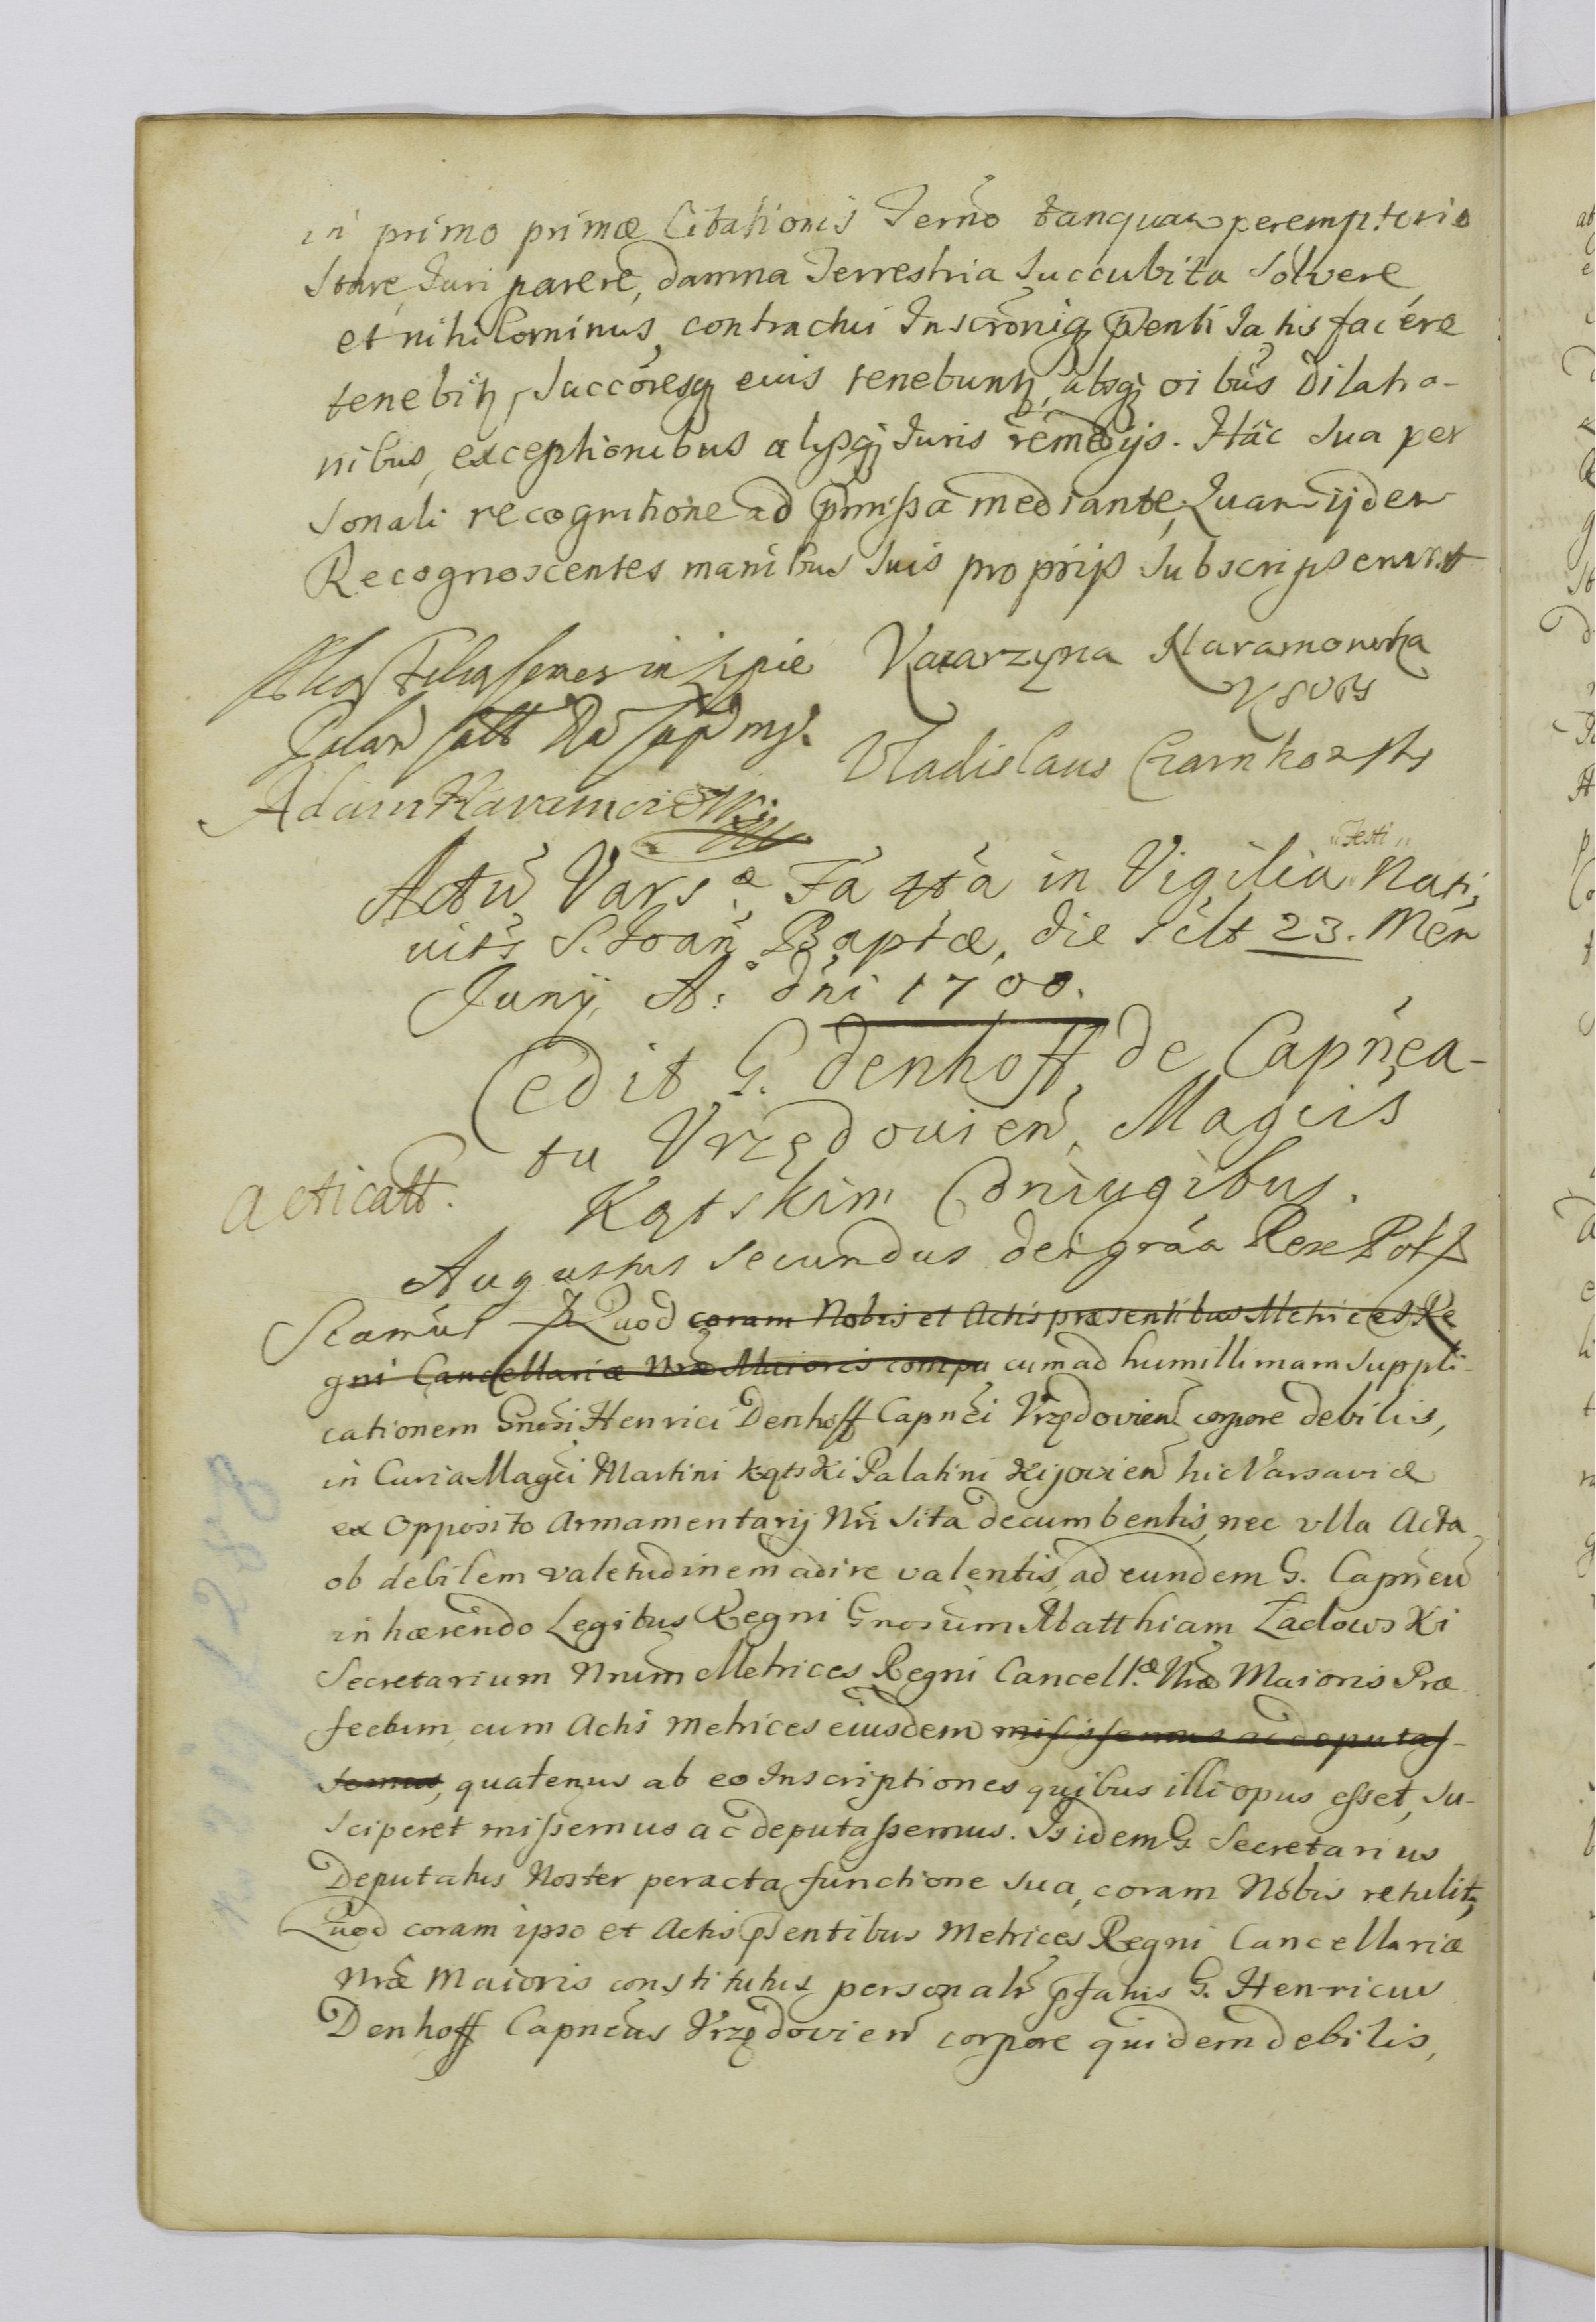 in primo primæ Citationis Term̃o tanquam peremptorio
stare, Juri parere, damna Terrestria succubita solvere
et nihilominus, contractui Inscr̃oniq; pñenti satisfacere
tenebitr, Succõresq; eius tenebuntr, absq; oĩbus dilatio-
nibus, exceptionibus alijsq; Juris remedijs. Hac sua per
sonali recognitione ad p̃missa mediante, Quam ijdem
Recognoscentes manibus suis proprijs subscripserunt
Katarzyna Karamowska
Vladislaus Czarnkowski
Adam Karamowski
Actũ Vars.æ Fã 4tã in Vigilia Festi Nati,
uitis S. Joañ Baptæ, die scilt 23. Meñ
Junij, A: dñi 1700.
Cedit G. Denhoff de Capñea-
tu Vrzędouien̄ Magcis
Kątskim Coniugibus.
Acticatt.
Augustus Secundus dei gr̃a Rex Pol
Sẽamus Quod coram Nobis et Actis præsentibus Metrices Re
gni Cancellariæ Nr̃æ Maioris compa cum ad humillimam suppli-
cationem Gnosi Henrici Denhoff Capnẽi Vrzędovien̄ corpore debilis,
in Curia Magci Martini Kątski Palatini Kijovien̄ hic Varsaviæ
ex Opposito Armamentarij Nr̃i sita decumbentis, nec vlla Acta
ob debilem valetudinem adire valentis, ad eundem G. Capñeũ
inhærendo Legibus Regni Gnosum Matthiam Ładowski
Secretarium Nrum Metrices Regni Cancell.æ Nr̃æ Maioris Præ
fectum, cum Actis Metrices eiusdem misissemus ac deputas-
semus, quatenus ab eo Inscriptiones quibus illi opus esset, su-
sciperet missemus ac deputassemus. Is idem G. Secretarius
Deputatus Noster peracta functione sua, coram Nobis retulit,
Quod coram ipso et Actis pñsentibus Metrices Regni Cancellariæ
Nr̃æ Maioris constitutus personalr̃ p̃fatus G. Henricus
Denhoff Capnẽus Vrzędovien̄ corpore quidem debilis,